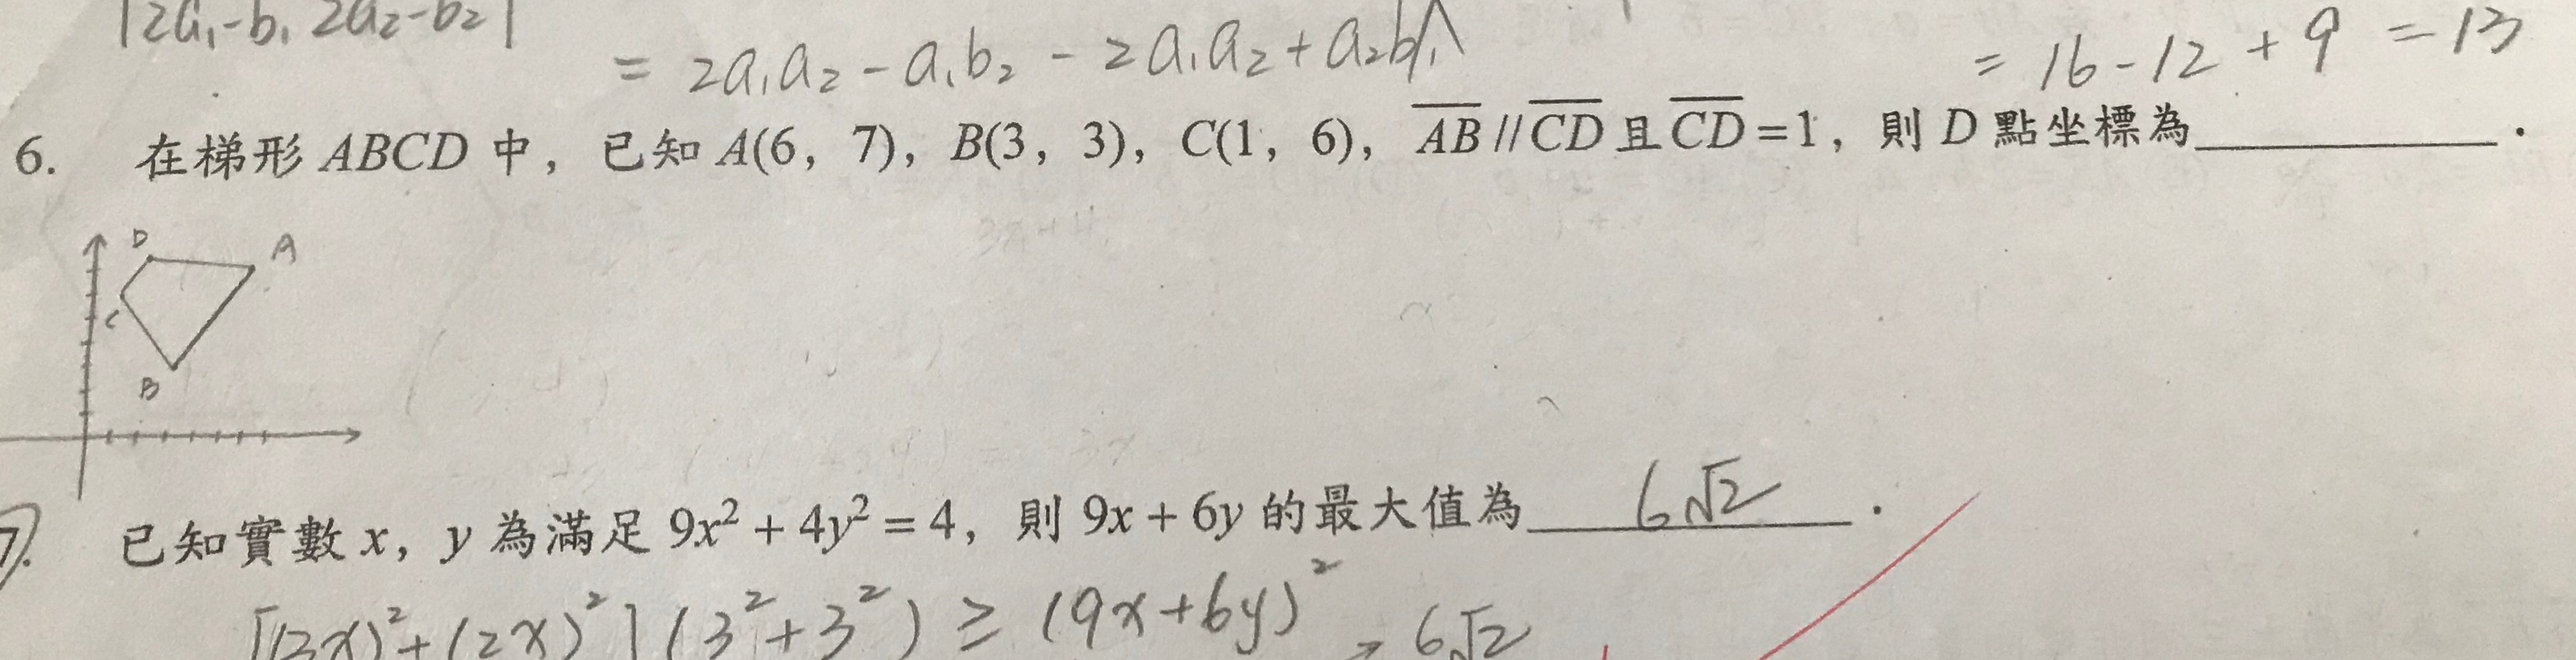 |2a₁-b₁ 2a₂-b₂|
= 2a₁a₂ - a₁b₂ - 2a₁a₂ + a₂b₁
= 16 - 12 + 9 = 13
6. 在梯形 ABCD 中，已知 A(6，7)，B(3，3)，C(1，6)，A̅B̅ // C̅D̅ 且 C̅D̅ = 1，則 D 點坐標為__________．
D A
C
B
7. 已知實數 x，y 為滿足 9x² + 4y² = 4，則 9x + 6y 的最大值為 6√2 ．
[(3x)² + (2x)²] (3² + 3²) ≥ (9x + 6y)²
6√2